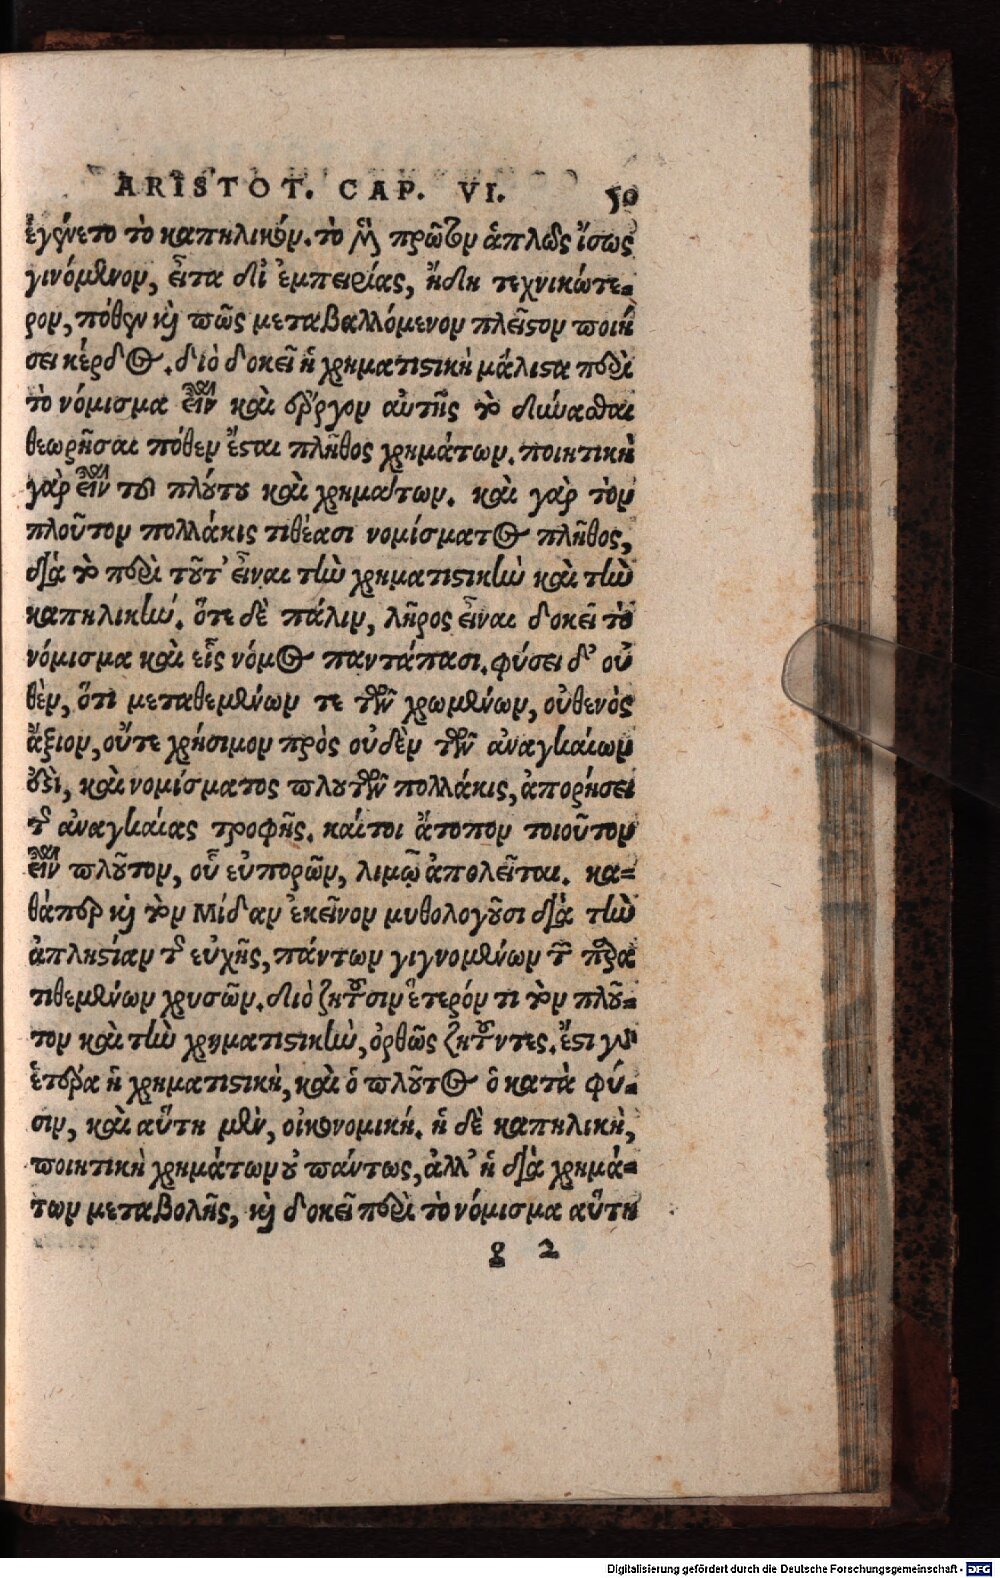 ARISTOT. CAP. VI. 50
ἐγένετο τὸ καπηλικόν. τὸ μὲν πρῶτον ἁπλῶς ἴσως
γινόμενον, εἶτα δι' ἐμπειρίας, ἤδη τεχνικώτε-
ρον, πόθεν καὶ πῶς μεταβαλλόμενον πλεῖστον ποιή
σει κέρδος. διὸ δοκεῖ ἡ χρηματιστικὴ μάλιστα περὶ
τὸ νόμισμα εἶναι καὶ ἔργον αὐτῆς τὸ δύνασθαι
θεωρῆσαι πόθεν ἔσται πλῆθος χρημάτων. ποιητικὴ
γὰρ εἶναι τοῦ πλούτου καὶ χρημάτων. καὶ γὰρ τὸν
πλοῦτον πολλάκις τιθέασι νομίσματος πλῆθος,
διὰ τὸ περὶ τοῦτ' εἶναι τὴν χρηματιστικὴν καὶ τὴν
καπηλικήν. ὅτε δὲ πάλιν, λῆρος εἶναι δοκεῖ τὸ
νόμισμα καὶ εἰς νόμος παντάπασι. φύσει δ' οὐ
θὲν, ὅτι μεταθεμένων τε τῶν χρωμένων, οὐθενὸς
ἄξιον, οὔτε χρήσιμον πρὸς οὐδὲν τῶν ἀναγκαίων
ἐστὶ, καὶ νομίσματος πλουτῶν πολλάκις, ἀπορήσει
τῆς ἀναγκαίας τροφῆς. καίτοι ἄτοπον τοιοῦτον
εἶναι πλοῦτον, οὗ εὐπορῶν, λιμῷ ἀπολεῖται. κα-
θάπερ καὶ τὸν Μίδαν ἐκεῖνον μυθολογοῦσι διὰ τὴν
ἀπληστίαν τῆς εὐχῆς, πάντων γιγνομένων τῶν παρα
τιθεμένων χρυσῶν. διὸ ζητοῦσιν ἕτερόν τι τὸν πλοῦ-
τον καὶ τὴν χρηματιστικὴν, ὀρθῶς ζητοῦντες. ἔστι γὰρ
ἑτέρα ἡ χρηματιστικὴ, καὶ ὁ πλοῦτος ὁ κατὰ φύ-
σιν, καὶ αὕτη μὲν, οἰκονομική. ἡ δὲ καπηλικὴ,
ποιητικὴ χρημάτων οὐ πάντως, ἀλλ' ἡ διὰ χρημά-
των μεταβολῆς, καὶ δοκεῖ περὶ τὸ νόμισμα αὕτη
g 2
Digitalisierung gefördert durch die Deutsche Forschungsgemeinschaft - DFG